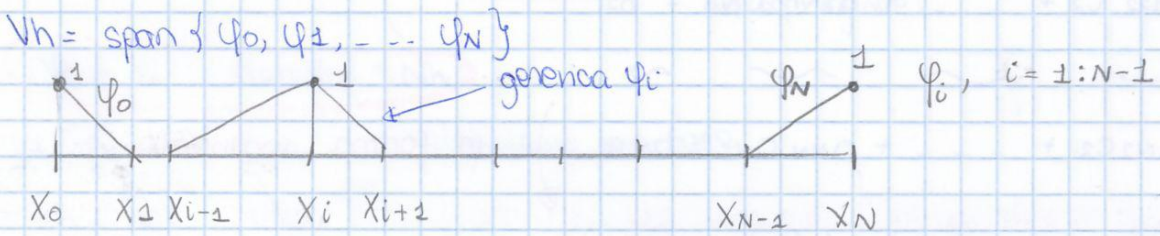 Vh = span { φ0, φ1, - - - φN }
1 φ0 1 generica φi φN 1 φi, i = 1:N-1
x0 x1 xi-1 xi xi+1 xN-1 xN